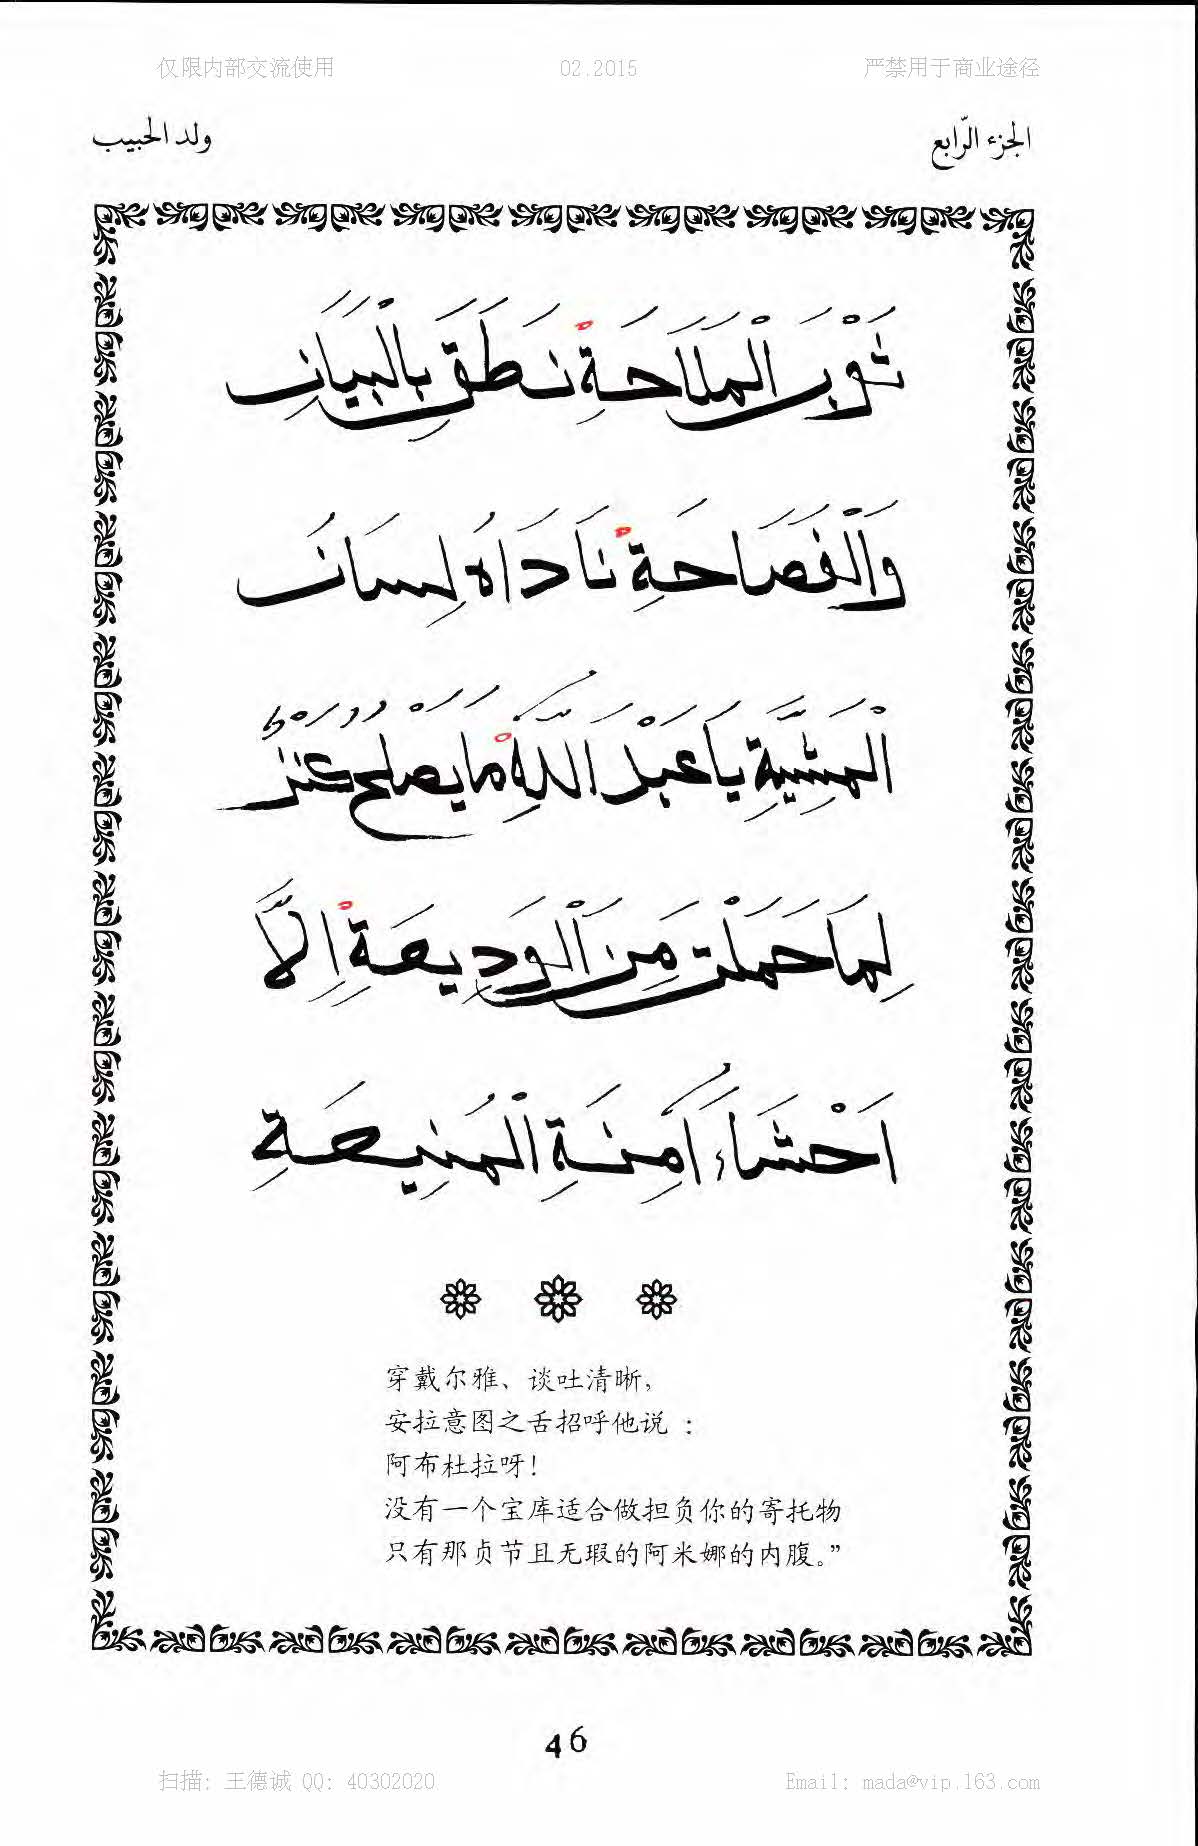 仅限内部交流使用 02.2015 严禁用于商业途径
الجزء الرّابع ولد الحبيب
ثَوْبَ الْمَلَاحَةِ نَطَقَ بِالْبَيَانِ
وَالْفَصَاحَةِ نَادَاهُ لِسَانُ
الْمَشِيَّةِ يَا عَبْدَ اللَّهِ مَا يَصْلُحُ كَنْزٌ
لِمَا حَمَلْتَ مِنَ الْوَدِيعَةِ إِلَّا
اَحْشَاءُ اٰمِنَةِ الْمُنِيعَةِ
穿戴尔雅、谈吐清晰,
安拉意图之舌招呼他说 :
阿布杜拉呀!
没有一个宝库适合做担负你的寄托物
只有那贞节且无瑕的阿米娜的内腹。”
46
扫描: 王德诚 QQ: 40302020 Email: mada@vip.163.com